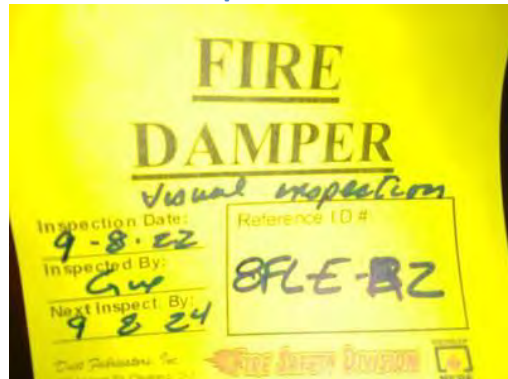 FIRE
DAMPER
Visual inspection
Inspection Date:
9-8-22
Inspected By:
Next Inspect. By:
9 8 24
Reference ID #
8FL-E-
Duct Fabricators, Inc.
FIRE SAFETY DIVISION